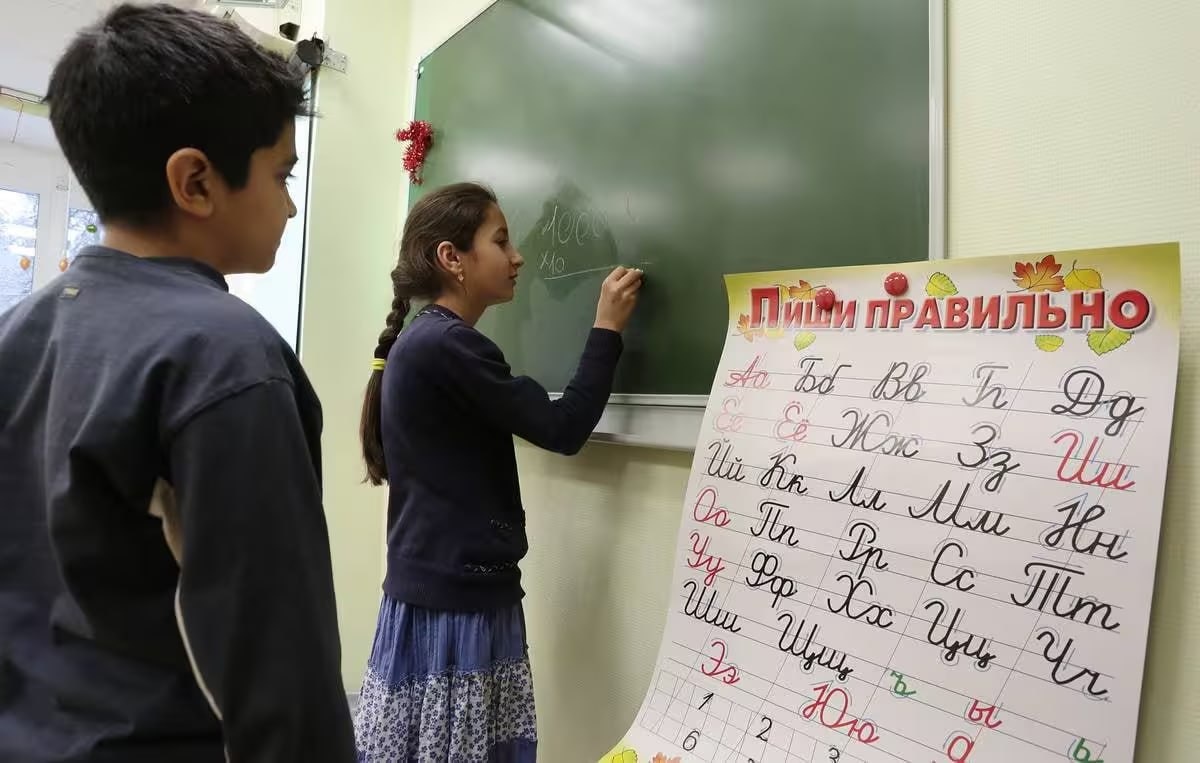 1000
×10
Пиши правильно
Аа Бб Вв Гг Дд
Ее Ёё Жж Зз Ии
Йй Кк Лл Мм Нн
Оо Пп Рр Сс Тт
Уу Фф Хх Цц Чч
Шш Щщ ъ ы ь
Ээ Юю Яя
1 2 3
6